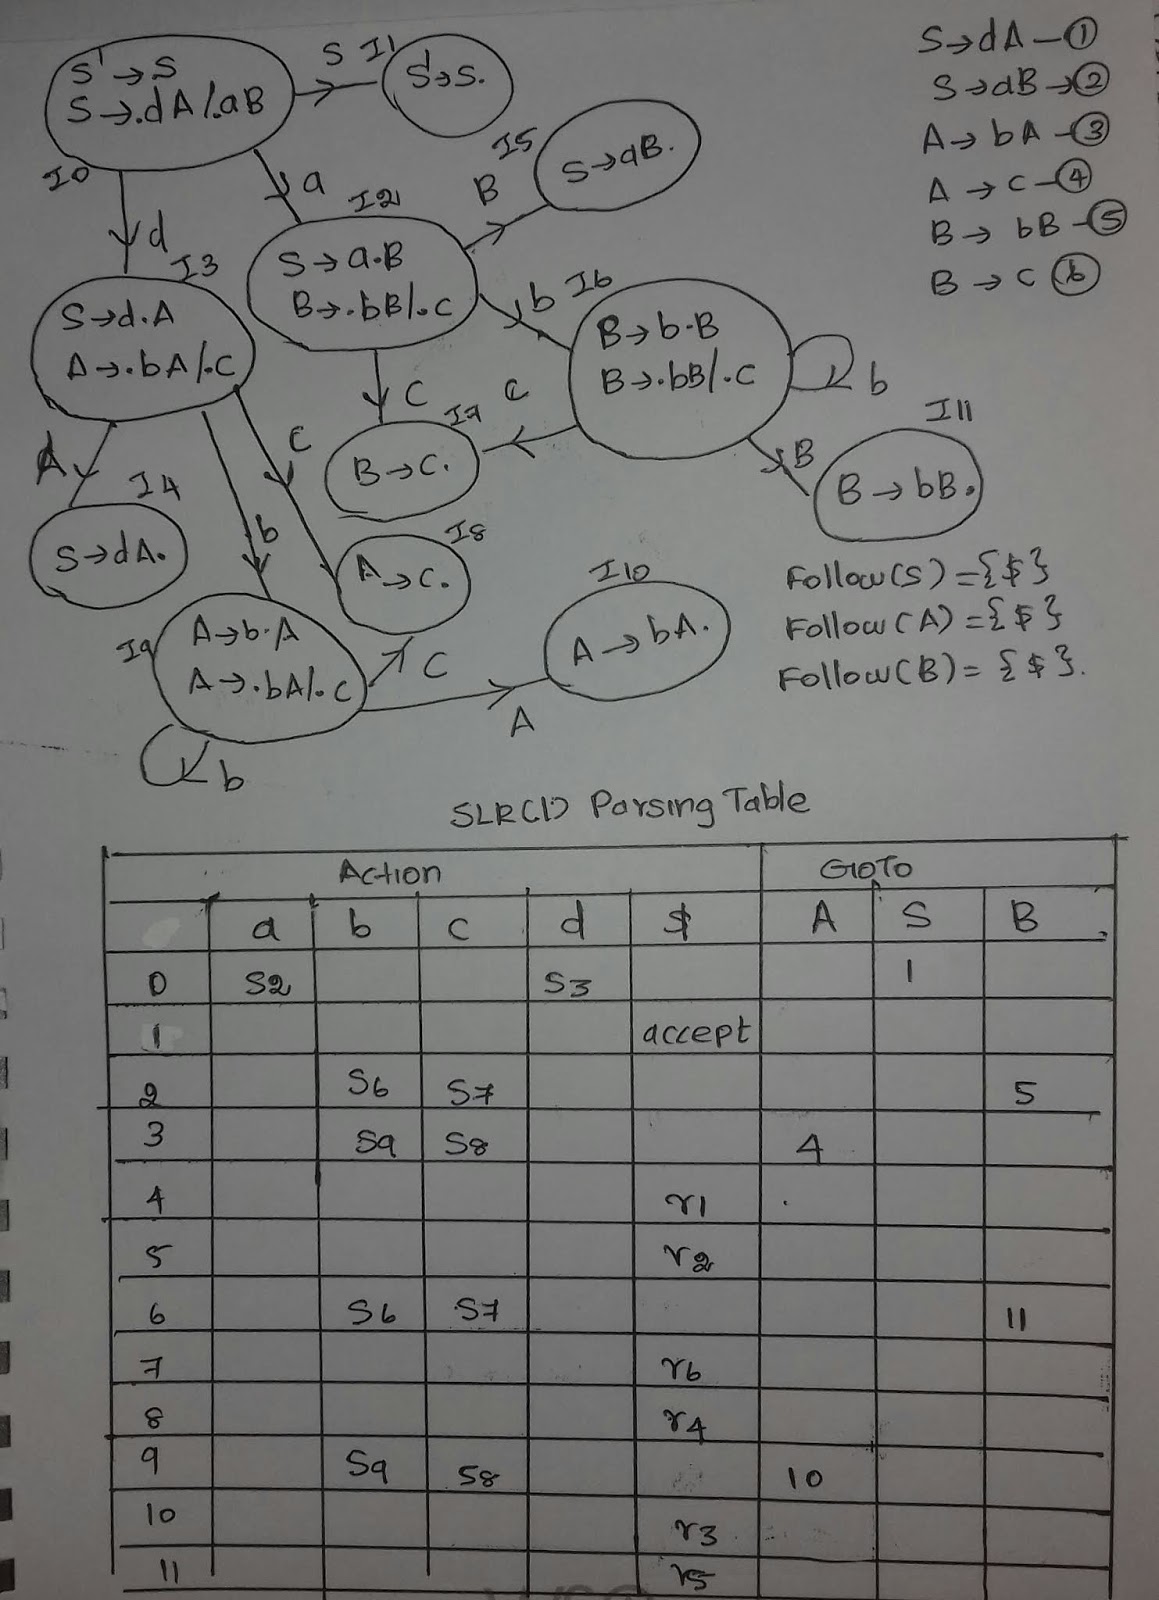 S' → S
S → .dA/.aB
I0
S
I1
S' → S.
a
d
I5
S → aB.
B
I2
S → a.B
B → .bB/.c
I3
S → d.A
A → .bA/.c
b
I6
B → b.B
B → .bB/.c
b
c
c
I7
B → c.
B
I11
B → bB.
A
I4
S → dA.
c
b
I8
A → c.
I9
A → b.A
A → .bA/.c
c
b
A
I10
A → bA.
S → dA - ①
S → aB → ②
A → bA - ③
A → c - ④
B → bB - ⑤
B → c ⑥
Follow(S) = {$}
Follow(A) = {$}
Follow(B) = {$}.
SLR(1) Parsing Table
Action GOTO
a b c d $ A S B
0 S2 S3 1
1 accept
2 S6 S7 5
3 S9 S8 4
4 r1
5 r2
6 S6 S7 11
7 r6
8 r4
9 S9 S8 10
10 r3
11 r5